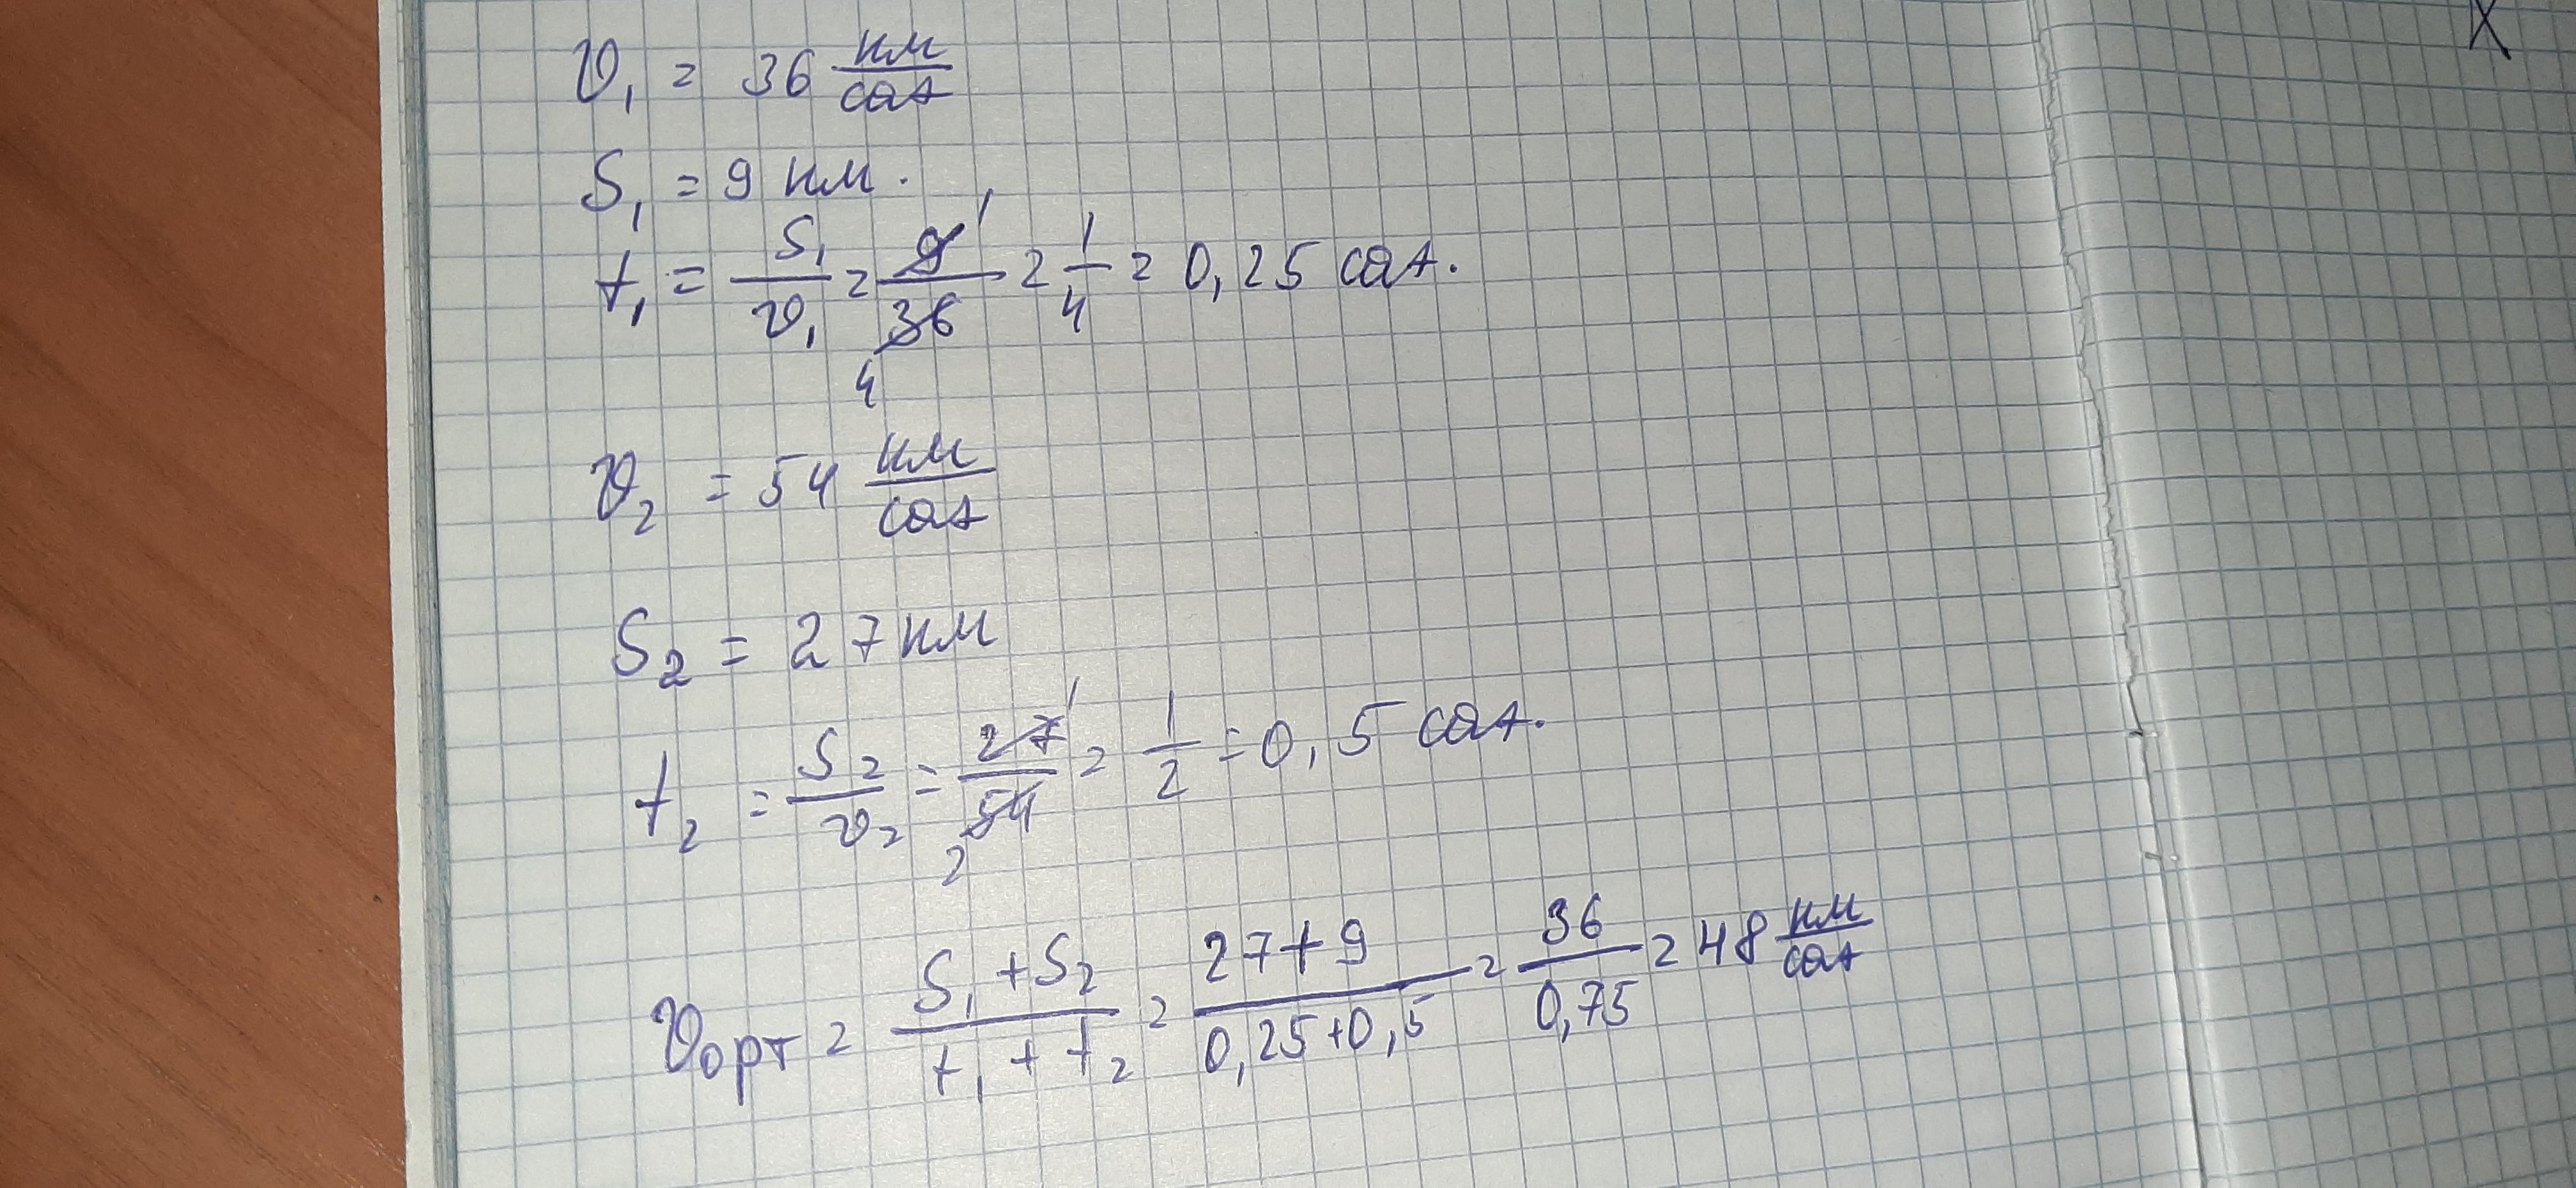 υ₁ = 36 км/саг
S₁ = 9 км.
t₁ = S₁/υ₁ = 9/36 = 1/4 = 0,25 саг.
υ₂ = 54 км/саг
S₂ = 27 км
t₂ = S₂/υ₂ = 27/54 = 1/2 = 0,5 саг.
υорт = S₁+S₂/t₁+t₂ = 27+9/0,25+0,5 = 36/0,75 = 48 км/саг